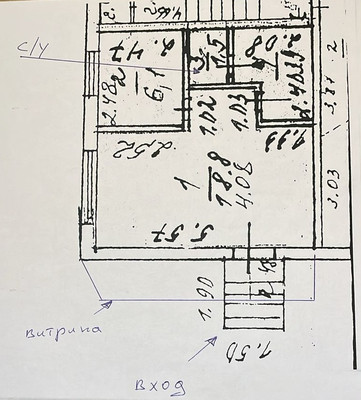 2.
4.66
2
С/У
2.47
3
1.5
2.08
4
2.48
2
6,1
1.02
1.03
3.81
2.52
1.93
1
18.8
4.08
3.03
5.57
1.90
1.50
витрина
вход